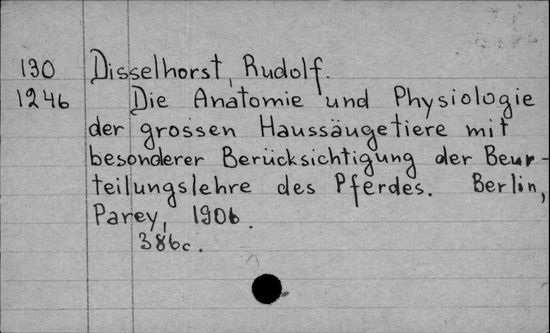 130 Disselhorst, Rudolf.
1246 Die Anatomie und Physiologie
der grossen Haussäugetiere mit
besonderer Berücksichtigung der Beur-
teilungslehre des Pferdes. Berlin,
Parey, 1906.
386c.